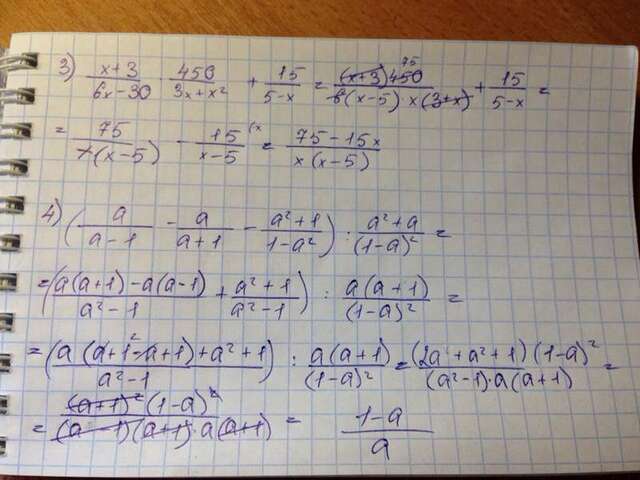 3) (x+3)/(6x-30) · 450/(3x+x²) + 15/(5-x) = ((x+3)450 75)/(6(x-5)·x(3+x)) + 15/(5-x) =
= 75/(x(x-5)) - 15(x/(x-5) = (75-15x)/(x(x-5))
4) (a/(a-1) - a/(a+1) - (a²+1)/(1-a²)) : (a²+a)/(1-a)² =
= ((a(a+1)-a(a-1))/(a²-1) + (a²+1)/(a²-1)) : a(a+1)/(1-a)² =
= ((a(a+1-a+1)+a²+1)/(a²-1)) : a(a+1)/(1-a)² = ((2a+a²+1)(1-a)²)/((a²-1)·a(a+1)) =
= ((a+1)²(1-a)²)/((a-1)(a+1)·a(a+1)) = (1-a)/a